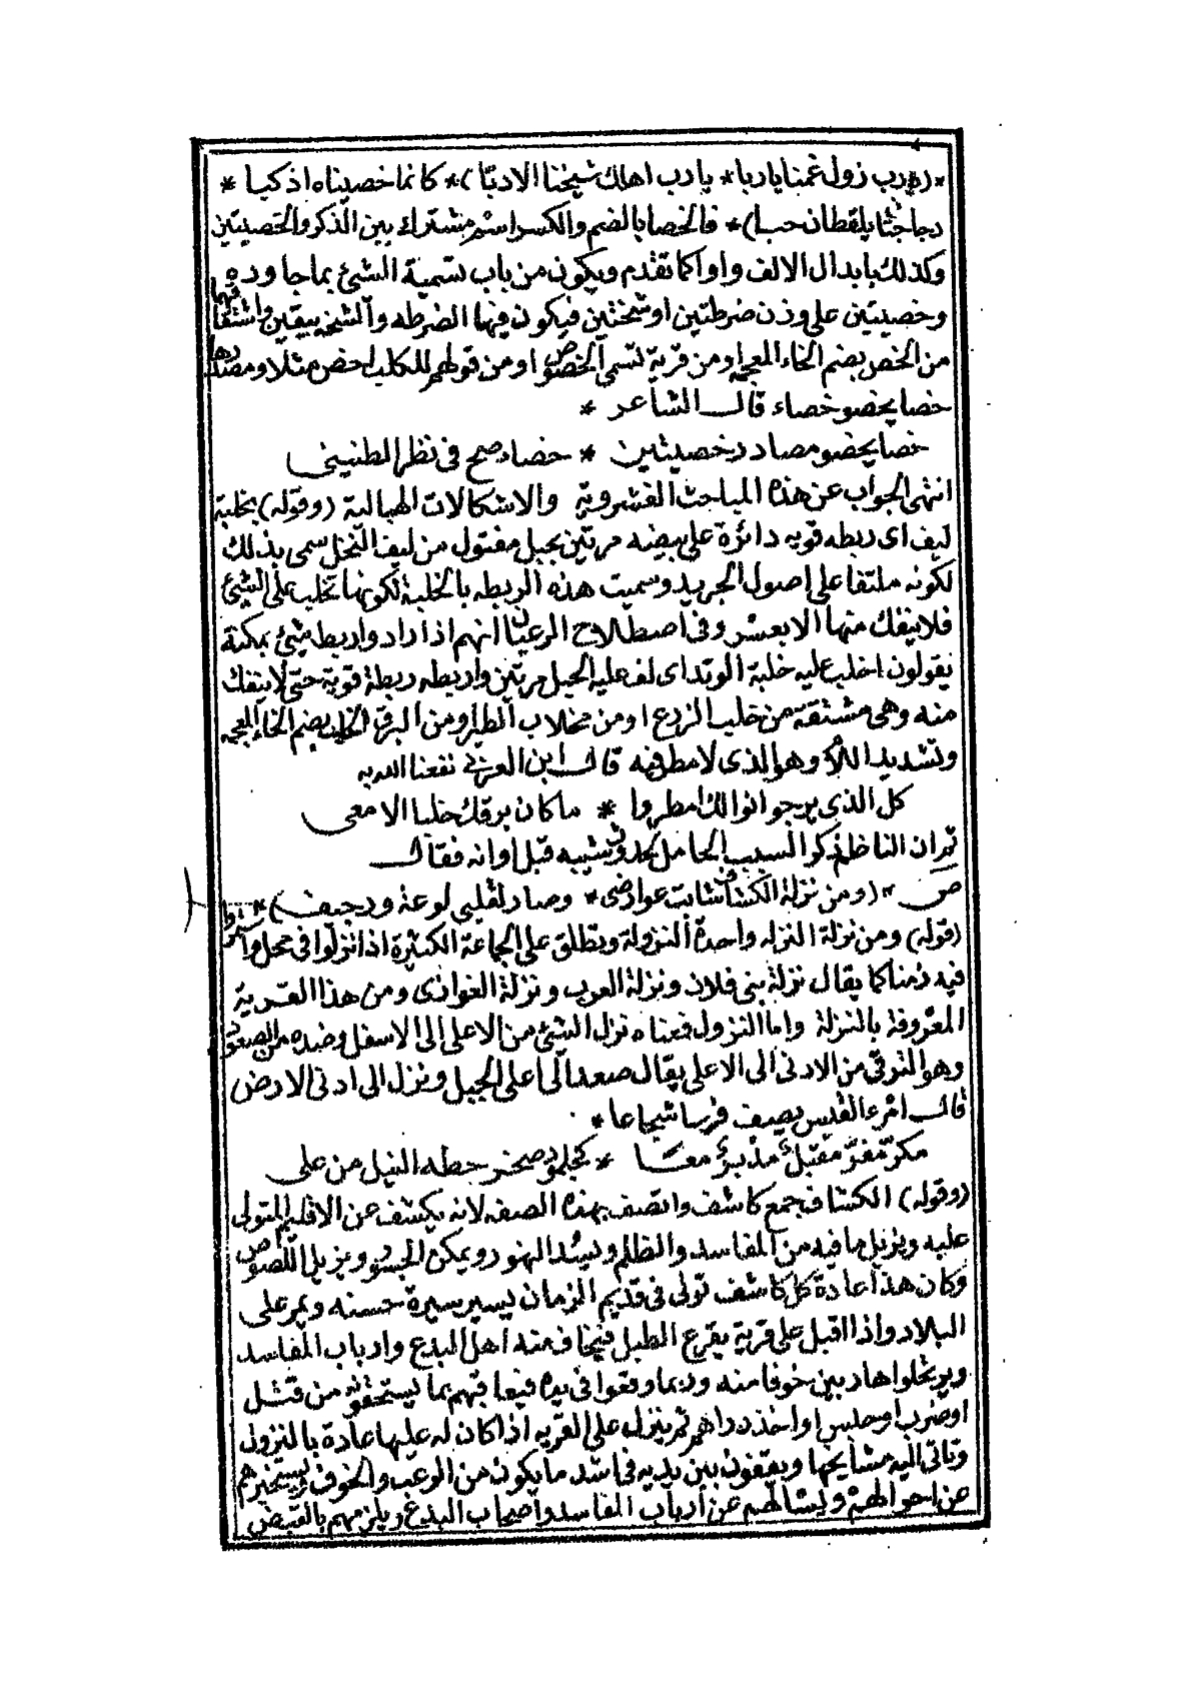 * (يا رب زول غمنا يا ربا * يا رب اهلك شيخنا الادبا) * كانما خصيناه اذ كبا *
دجاجتا يلقطان حبا) * فالخصا بالضم والكسر اسم مشترك بين الذكر والخصيتين
وكذلك بابدال الالف واوا كما تقدم ويكون من باب تسمية الشئ بما جاوره
وخصيتين على وزن ضرطتين او شختين فيكون فيها الضرطه والشخه بيقين واشتقاقها
من الخص بضم الخاء المعجمه او من قرية تسمى الخصوص او من قولهم للكلب اخص مثلا ومصدرها
خصا يخصو خصاء قال الشاعر *
خصا يخصو مصادر خصيتين * خصاء صح فى نظر الطنينى
انتهى الجواب عن هذه المباحث الفشرويه والاشكالات الهبالية (وقوله) بخلبة
ليف اى ربطه قويه دائرة على بيضه مرتين بحبل مفتول من ليف النخل سمى بذلك
لكونه ملتفا على اصول الجريد وسميت هذه الربطه بالخلبة لكونها تخلب على الشئ
فلا ينفك منها الا بعسر وفى اصطلاح الرعيان انهم اذا ارادوا ربط شئ بمكنة
يقولون اخلب عليه خلبة الوتد اى لف عليه الحبل مرتين واربطه ربطة قوية حتى لا ينفك
منه وهى مشتقة من خلب الزرع او من مخلاب الطير او من البرق الخلب بضم الخاء المعجمه
وتشديد اللام وهو الذى لا مطر فيه قال ابن العربى نفعنا الله به
كل الذى يرجو نوالك امطروا * ما كان برقك خلبا الا معى
ثم ان الناظم ذكر السبب الحامل لحدوث شيبه قبل اوانه فقال
ص * (ومن نزلة الكشاف شابت عوارضى * وصار لقلبى لوعة ورجيف) *
(قوله) ومن نزلة النزله واحدة النزولة وتطلق على الجماعة الكثيرة اذا نزلوا فى محل واستمروا
فيه زمنا كما يقال نزلة بنى فلان ونزلة العرب ونزلة الغوازى ومن هذا القرية
المعروفة بالنزلة واما النزول فمعناه نزل الشئ من الاعلى الى الاسفل وضده من الصعود
وهو الترقى من الادنى الى الاعلى يقال صعد الى اعلى الجبل ونزل الى ادنى الارض
قال امرء القيس يصف فرسا شجاعا *
مكر مفر مقبل مدبر معا * كجلمود صخر حطه السيل من على
(وقوله) الكشاف جمع كاشف واتصف بهذه الصفه لانه يكشف عن الاقليم المتولى
عليه ويزيل ما فيه من المفاسد والظلم ويسد النهور ويمكن الجسور ويزيل اللصوص
وكان هذا عادة كل كاشف تولى فى قديم الزمان يسير سيرة حسنه ويمر على
البلاد واذا اقبل على قرية يقرع الطبل فيخاف منه اهل البدع وارباب المفاسد
ويرتحلوا هاربين خوفا منه وربما وقعوا فى يده فيعاقبهم بما يستحقونه من قتل
او ضرب او حبس او اخذ دراهم ثم ينزل على القريه اذا كان له عليها عادة بالنزول
وتاتى اليه مشايخها ويقفون بين يديه فى اشد ما يكون من الرعب والخوف ويستخبرهم
عن احوالهم ويسالهم عن ارباب المفاسد واصحاب البدع ويلزمهم بالقبض